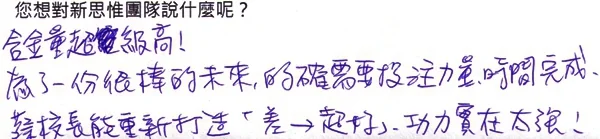 您想對新思惟團隊說什麼呢？
含金量超級高！
為了一份很棒的未來，的確需要投注力量、時間完成、
蔡校長能重新打造「差→超好」功力實在太強！